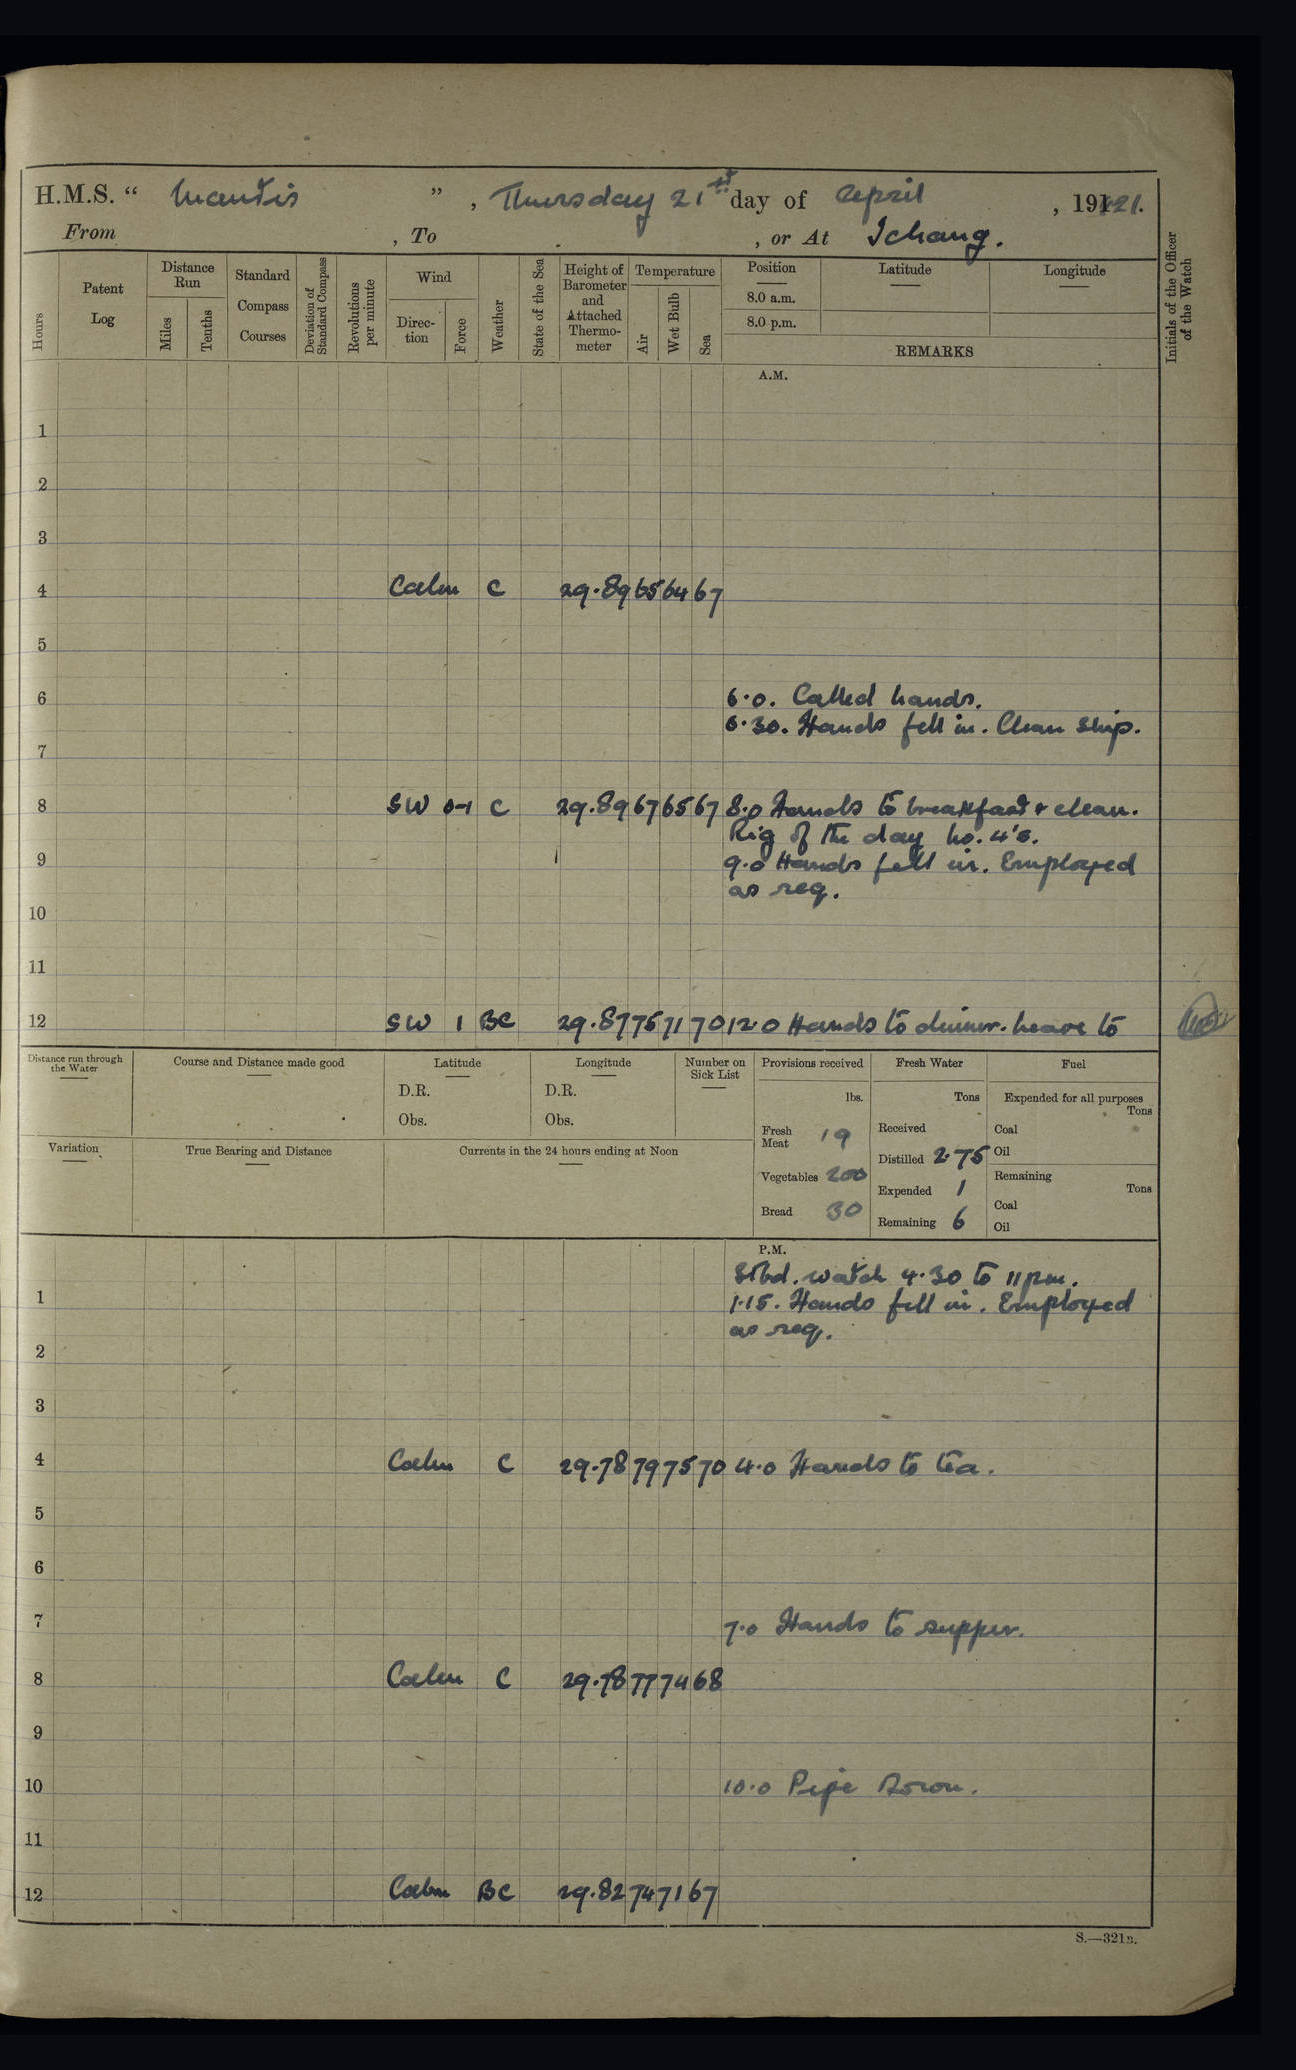 H.M.S. “ Mantis ” , Thursday 21st day of April , 1921.
From , To , or At Ichang.
Hours
Patent Log
Distance Run
Miles
Tenths
Standard Compass Courses
Deviation of Standard Compass
Revolutions per minute
Wind
Direc- tion
Force
Weather
State of the Sea
Height of Barometer and Attached Thermo- meter
Temperature
Air
Wet Bulb
Sea
Position
8.0 a.m.
8.0 p.m.
Latitude
Longitude
REMARKS
Initials of the Officer of the Watch
A.M.
1
2
3
4 Calm C 29.89 65 64 67
5
6 6.0. Called hands.
6.30. Hands fell in. Clean Ship.
7
8 SW 0-1 C 29.89 67 65 67 8.0 Hands to breakfast & clean.
Rig of the day No. 4's.
9 9.0 Hands fell in. Employed
as req.
10
11
12 SW 1 BC 29.87 75 71 70 12.0 Hands to dinner. Leave to
Distance run through the Water
Course and Distance made good
Latitude
D.R.
Obs.
Longitude
D.R.
Obs.
Number on Sick List
Provisions received
lbs.
Fresh Meat 19
Vegetables 200
Bread 30
Fresh Water
Tons
Received
Distilled 2.75
Expended 1
Remaining 6
Fuel
Expended for all purposes
Tons
Coal
Oil
Remaining
Tons
Coal
Oil
Variation
True Bearing and Distance
Currents in the 24 hours ending at Noon
P.M.
Stbd. watch 4.30 to 11 p.m.
1 1.15. Hands fell in. Employed
as req.
2
3
4 Calm C 29.78 79 75 70 4.0 Hands to tea.
5
6
7 7.0 Hands to supper.
8 Calm C 29.78 77 74 68
9
10 10.0 Pipe Down.
11
12 Calm BC 29.82 74 71 67
S.—321B.